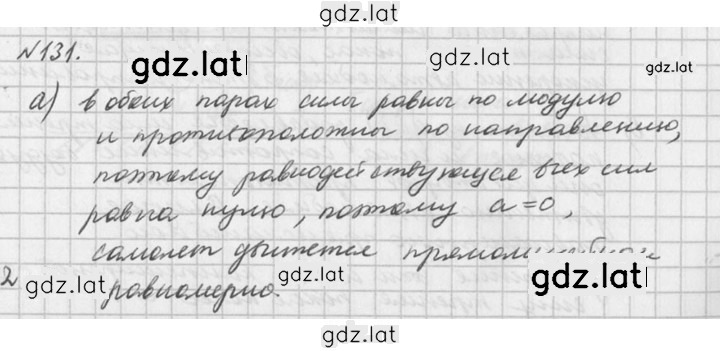 gdz.lat
№131.
gdz.lat
gdz.lat
а) в обеих парах силы равны по модулю
и противоположны по направлению,
поэтому равнодействующая всех сил
равна нулю, поэтому a=0,
самолет движется
2 gdz.lat gdz.lat gdz.lat
равномерно.
gdz.lat